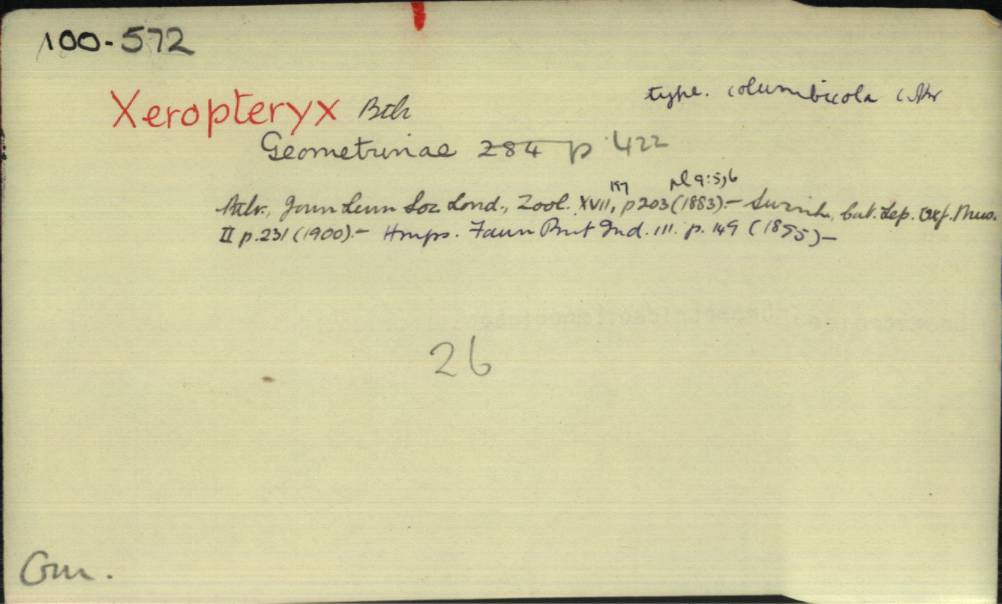 100-572
type. columbicola Wlkr
Xeropteryx Btlr
Geometrinae 284 p 422
197 pl 9:5,6
Butlr., Journ Linn Soc Lond., Zool. XVII, p203 (1883).- Swinh., Cat. Lep. Oxf. Mus.
II p.231 (1900).- Hmps. Faun Brit Ind. III. p. 149 (1895)-
26
Gm.